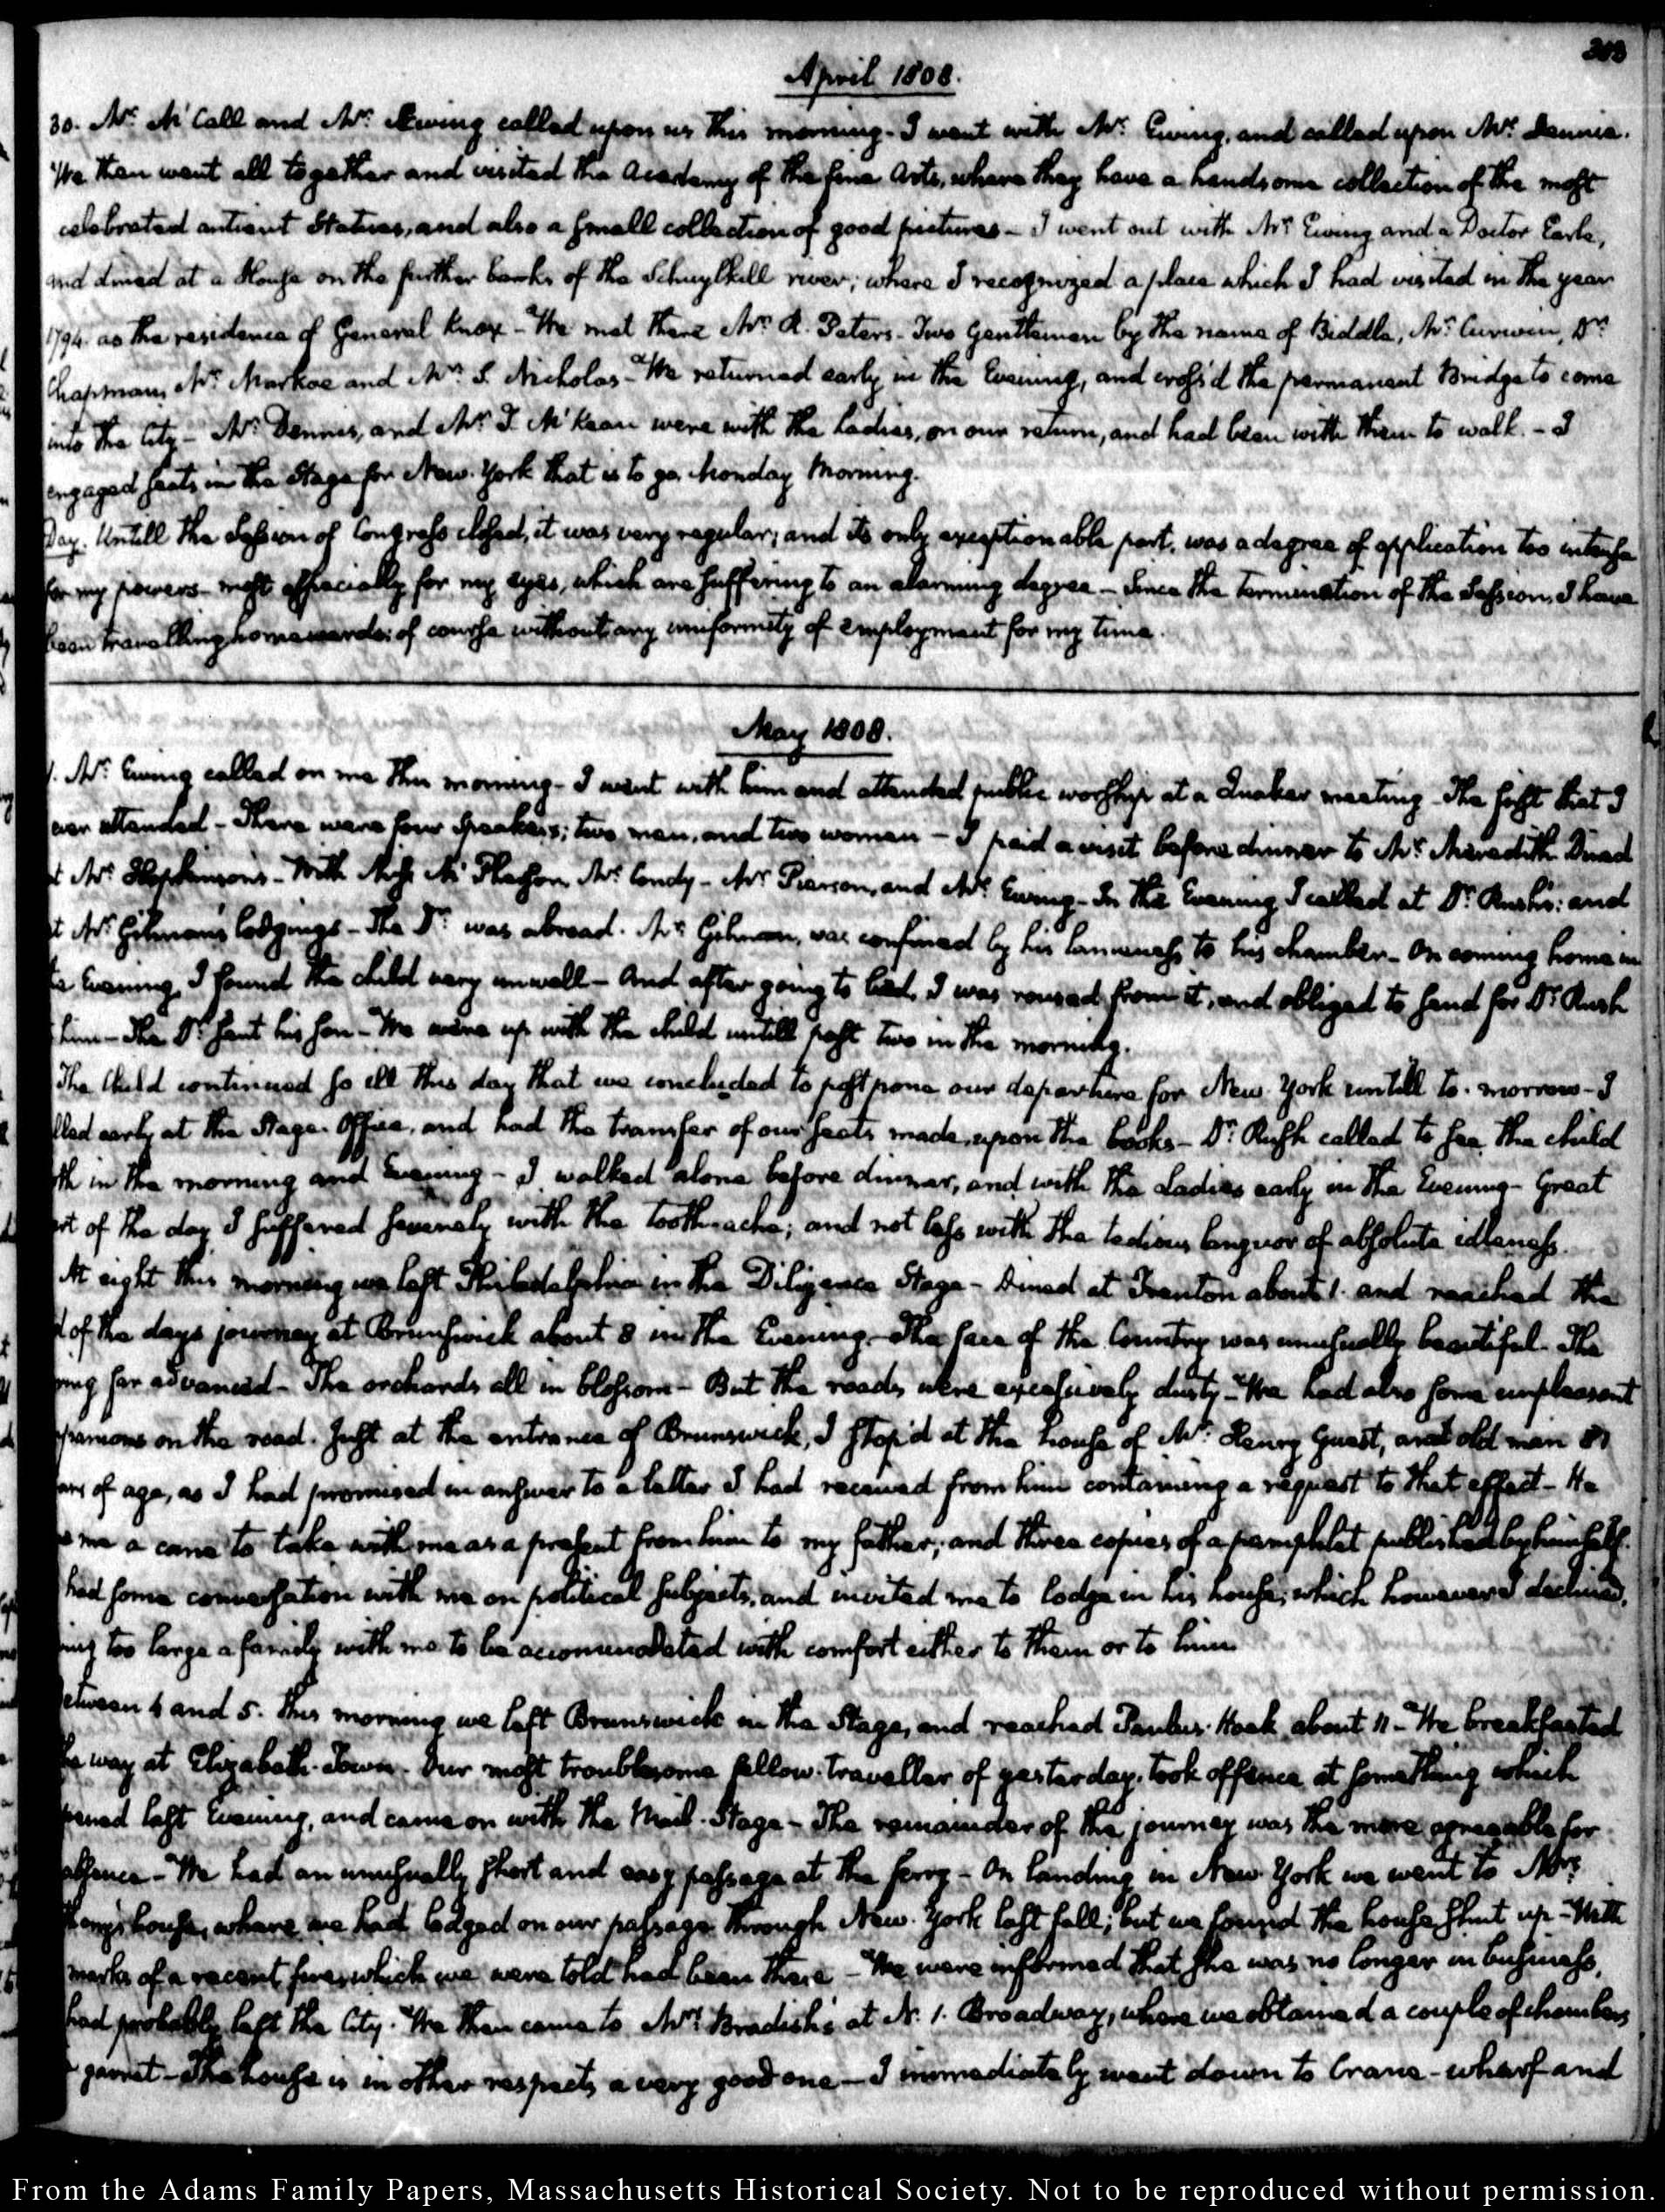 303
April 1808.
30. Mr. McCall and Mr. Ewing called upon us this morning - I went with Mr. Ewing, and called upon Mr. Dennie.
We then went all together and visited the Academy of the fine Arts, where they have a handsome collection of the most
celebrated antient Statues, and also a small collection of good pictures - I went out with Mr. Ewing and a Doctor Earle,
and dined at a House on the further banks of the Schuylkill river; where I recognized a place which I had visited in the year
1794. as the residence of General Knox - We met there Mr. R. Peters. Two Gentlemen by the name of Biddle, Mr. Curwen, Dr.
Chapman, Mr. Markoe and Mr. S. Nicholas - We returned early in the Evening, and cross'd the permanent Bridge to come
into the City - Mr. Dennie, and Mr. T. McKean were with the Ladies, on our return, and had been with them to walk. - I
engaged seats in the Stage for New-York that is to go Monday Morning.
Day. Untill the Session of Congress closed, it was very regular; and its only exceptionable part, was a degree of application too intense
for my powers - most especially for my eyes, which are suffering to an alarming degree - Since the termination of the Session, I have
been travelling homewards; of course without any uniformity of employment for my time.
May 1808.
1. Mr. Ewing called on me this morning - I went with him and attended public worship at a Quaker meeting - The first that I
ever attended - There were four Speakers; two men, and two women - I paid a visit before dinner to Mr. Meredith Dined
at Mr. Hopkinson's - With Mr. Condy - Mr. Pierson, and Mr. Ewing - In the Evening I called at Dr. Rush's: and
at Mr. Gilman's lodgings - The Dr. was abroad. Mr. Gilman, was confined by his lameness to his chamber - On coming home in
the Evening, I found the child very unwell - And after going to bed, I was roused from it, and obliged to send for Dr. Rush
him - The Dr. sent his son - We were up with the child untill past two in the morning.
The Child continued so ill this day that we concluded to postpone our departure for New-York untill to-morrow - I
called early at the Stage-Office, and had the transfer of our seats made, upon the books - Dr. Rush called to see the child
both in the morning and Evening - I walked alone before dinner, and with the Ladies early in the Evening - Great
part of the day I suffered severely with the tooth-ache; and not less with the tedious languor of absolute idleness.
At eight this morning we left Philadelphia in the Diligence Stage - Dined at Trenton about 1. and reached the
end of the days journey at Brunswick about 8 in the Evening - The face of the Country was unusually beautiful - The
Spring far advanced - The orchards all in blossom - But the roads were excessively dusty - We had also some unpleasant
companions on the road. Just at the entrance of Brunswick, I stop'd at the house of Mr. Henry Guest, an old man 81
years of age, as I had promised in answer to a letter I had received from him containing a request to that effect - He
me a cane to take with me as a present from him to my father; and three copies of a pamphlet published by himself.
had some conversation with me on political subjects, and invited me to lodge in his house; which however I declined,
having too large a family with me to be accommodated with comfort either to them or to him
Between 4 and 5. this morning we left Brunswick in the Stage, and reached Paulus-Hook about 11 - We breakfasted
the way at Elizabeth-Town. Our most troublesome fellow-traveller of yesterday, took offence at something which
happened last Evening, and came on with the Mail-Stage - The remainder of the journey was the more agreeable for
absence - We had an unusually short and easy passage at the ferry - On landing in New-York we went to Mrs.
house, where we had lodged on our passage through New-York last fall; but we found the house shut up - With
marks of a recent fire, which we were told had been there - We were informed that she was no longer in business,
had probably left the City. We then came to Mrs. Bradish's at N. 1. Broadway, where we obtained a couple of chambers
garret - The house is in other respects a very good one - I immediately went down to Crane-wharf and
From the Adams Family Papers, Massachusetts Historical Society. Not to be reproduced without permission.